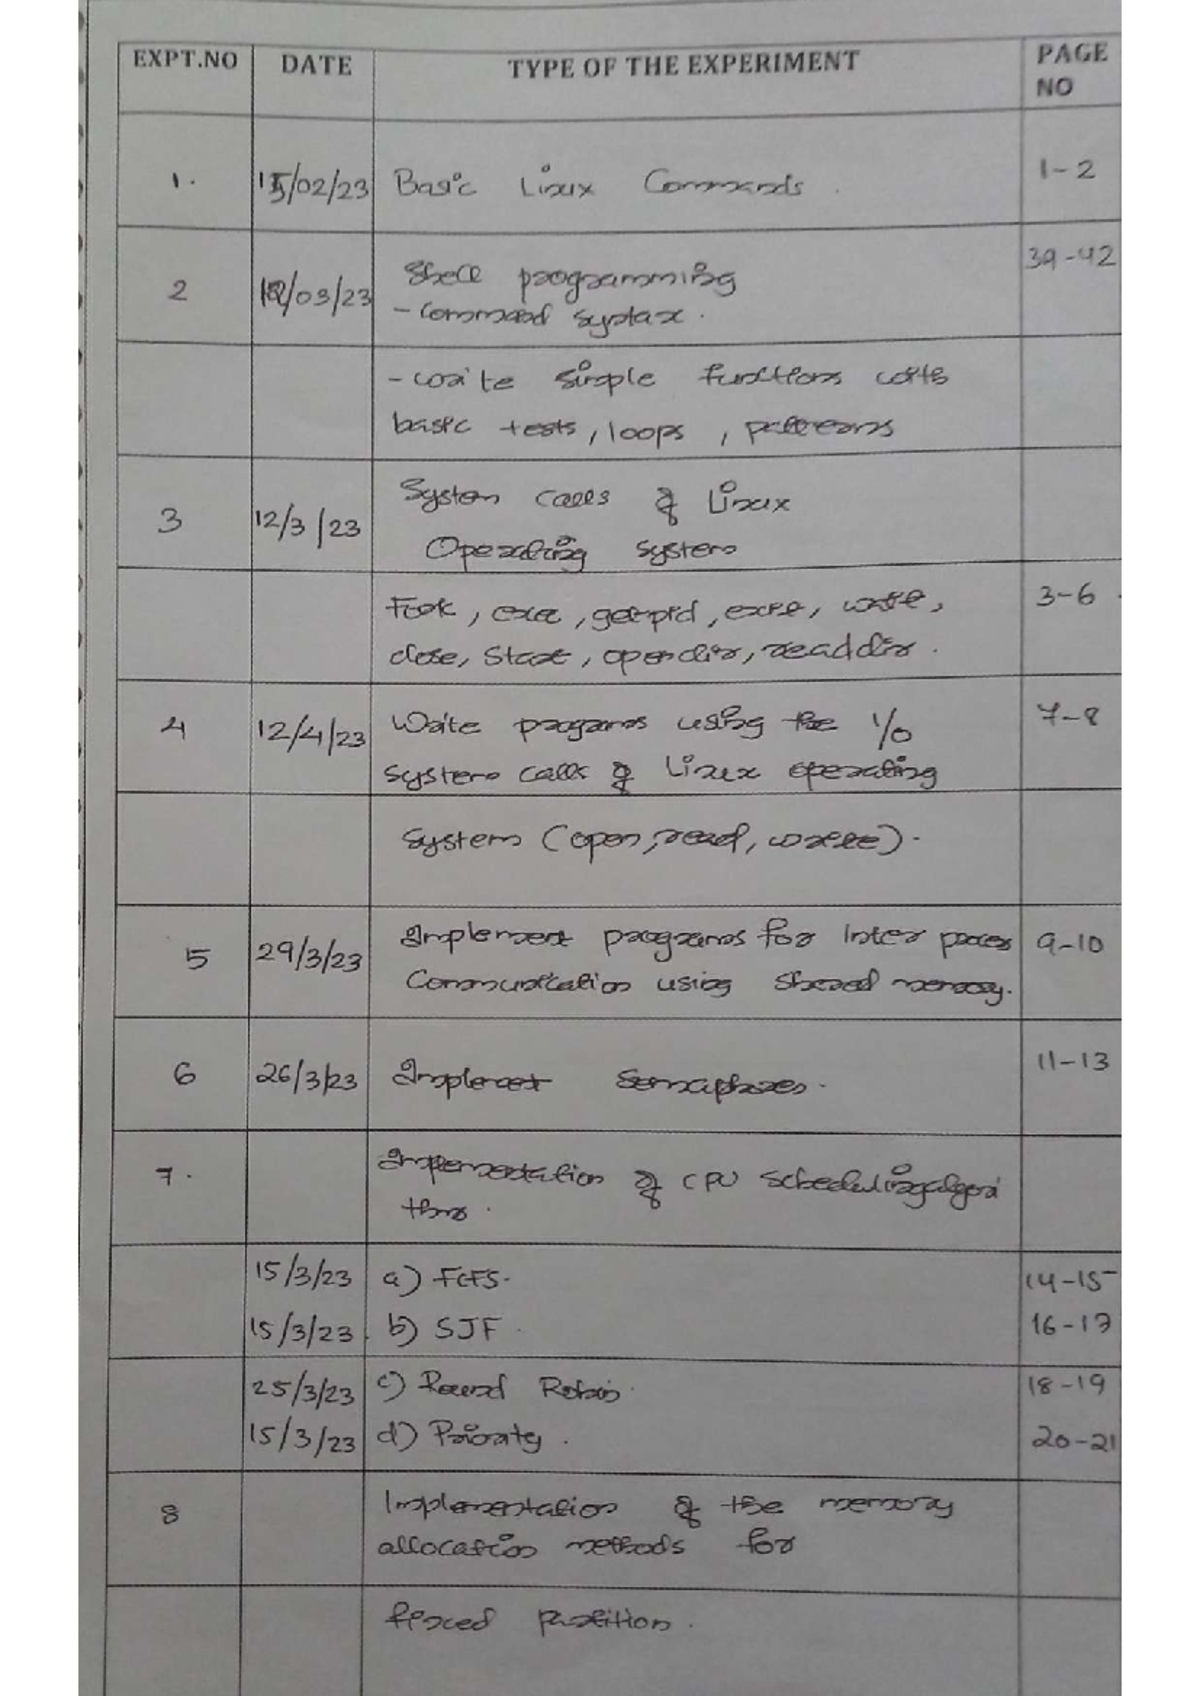 EXPT.NO DATE TYPE OF THE EXPERIMENT PAGE NO
1. 15/02/23 Basic Linux Commands. 1-2
2 /03/23 Shell programming 39-42
- Command syntax.
- write simple functions with
basic tests, loops, patterns
3 12/3/23 System calls of Linux
Operating system
Fork, exec, getpid, exit, wait, 3-6
close, stat, opendir, readdir.
4 12/4/23 Write programs using the I/O 7-8
system calls of Linux operating
System (open, read, write).
5 29/3/23 Implement programs for Inter process 9-10
Communication using shared memory.
6 26/3/23 Implement Semaphores. 11-13
7. Implementation of CPU scheduling algori
thms.
15/3/23 a) FCFS. 14-15
15/3/23. b) SJF. 16-17
25/3/23 c) Round Robin. 18-19
15/3/23 d) Priority. 20-21
8 Implementation of the memory
allocation methods for
fixed partition.